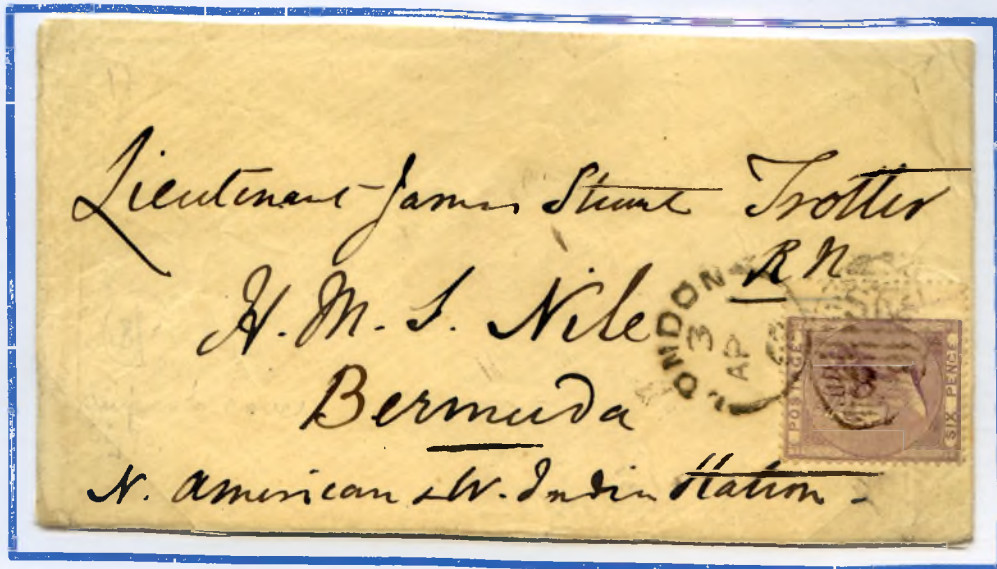 Lieutenant James Stuart Trotter
R N
H. M. S. Nile
Bermuda
N. American & W. India Station -
LONDON
3
AP
POSTAGE
SIX PENCE